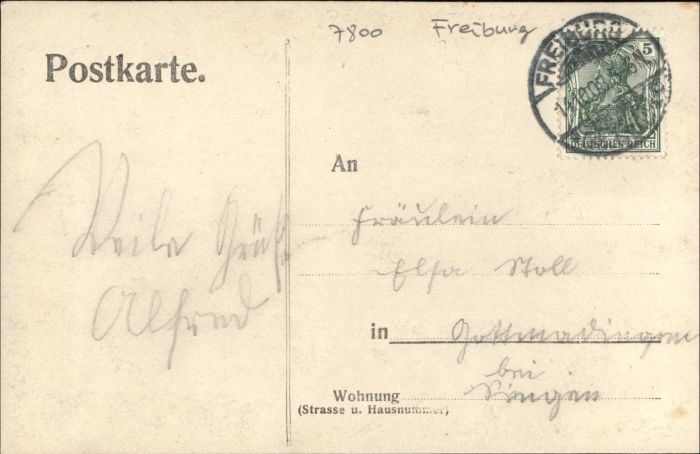 7800 Freiburg
Postkarte.
FREIBURG
5
DEUTSCHES REICH
An
Fräulein
Elsa Stoll
in Gottmadingen
bei
Singen
Wohnung
(Strasse u. Hausnummer)
Viele Grüße
Alfred